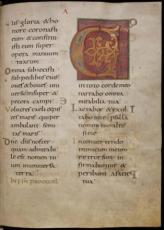 gloria & ho
nore coronasti
eum & constitu
isti eum super
opera manuum
tuarum
Omnia subiecisti
sub pedibus eius
oues & boues uni
uersas insuper &
pecora campi
Uolucres caeli & pis
ces maris qui per
ambulant semi
tas maris
Dne dns noster
quam admirabi
le est nomen tu
um in uniuersa
terra
in toto corde meo
narrabo omnia
mirabilia tua
& exul
tabo in te
nomini tuo altis
sime
In conuertendo
inimicum meum
retrorsum in
firmabuntur &
peribunt a facie
tua